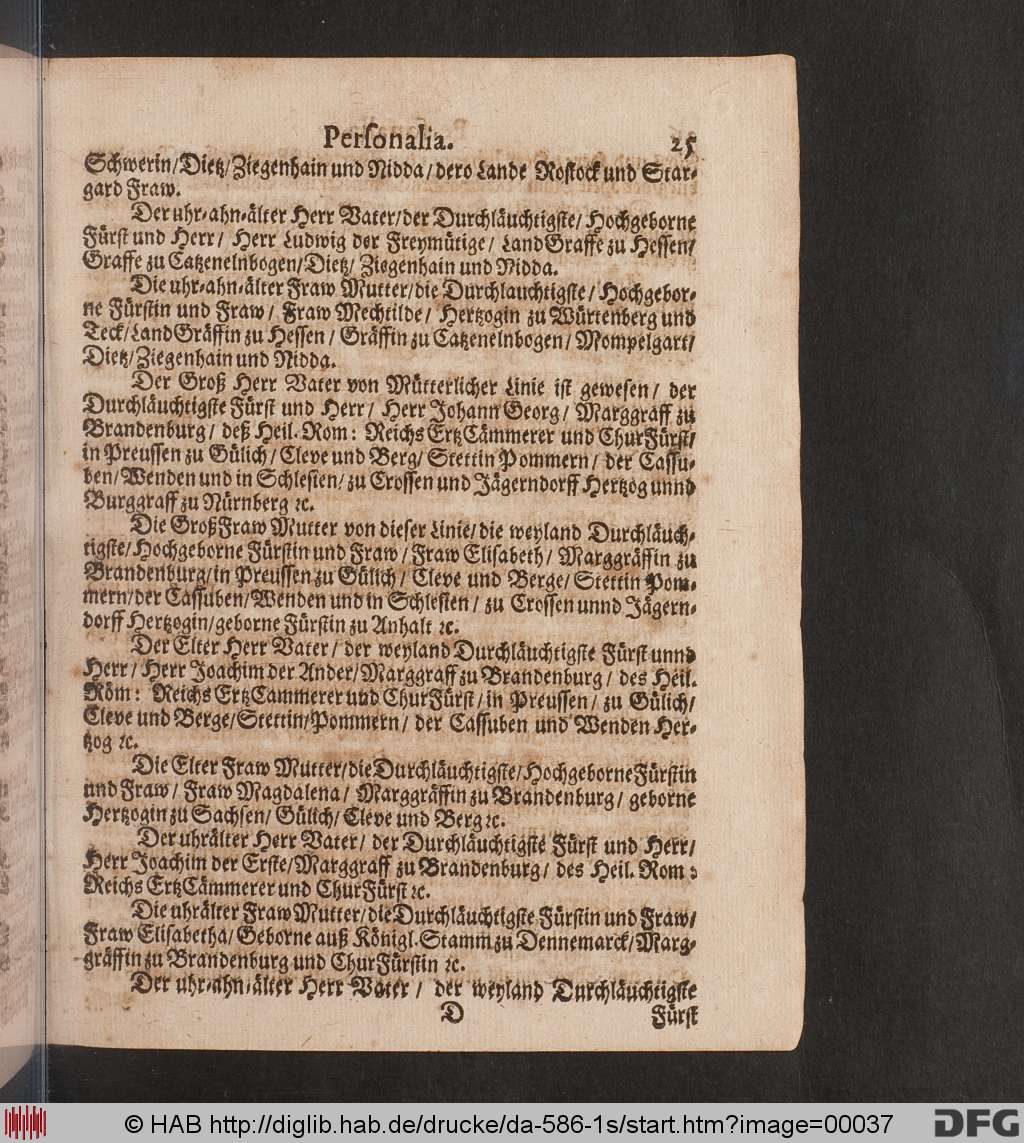 Personalia. 25
Schwerin/Dietz/Ziegenhain und Nidda/dero Lande Rostock und Star-
gard Fraw.
Der uhr-ahn-älter Herr Vater/der Durchläuchtigste/ Hochgeborne
Fürst und Herr/ Herr Ludwig der Freymütige/ LandGraffe zu Hessen/
Graffe zu Catzenelnbogen/Dietz/ Ziegenhain und Nidda.
Die uhr-ahn-älter Fraw Mutter/die Durchlauchtigste/ Hochgebor-
ne Fürstin und Fraw/ Fraw Mechtilde/ Hertzogin zu Würtenberg und
Teck/LandGräffin zu Hessen/ Gräffin zu Catzenelnbogen/ Mompelgart/
Dietz/Ziegenhain und Nidda.
Der Groß Herr Vater von Mütterlicher Linie ist gewesen/ der
Durchläuchtigste Fürst und Herr/ Herr Johann Georg/ Marggraff zu
Brandenburg/ deß Heil. Rom: Reichs ErtzCämmerer und ChurFürst/
in Preussen zu Gülich/ Cleve und Berg/ Stettin Pommern/ der Cassu-
ben/Wenden und in Schlesien/ zu Crossen und Jägerndorff Hertzog unnd
Burggraff zu Nürnberg ꝛc.
Die GroßFraw Mutter von dieser Linie/die weyland Durchläuch-
tigste/Hochgeborne Fürstin und Fraw/Fraw Elisabeth/ Marggräffin zu
Brandenburg/in Preussen zu Gülich/ Cleve und Berge/ Stettin Pom-
mern/der Cassuben/Wenden und in Schlesien/ zu Crossen unnd Jägern-
dorff Hertzogin/geborne Fürstin zu Anhalt ꝛc.
Der Elter Herr Vater/ der weyland Durchläuchtigste Fürst unnd
Herr/ Herr Joachim der Ander/Marggraff zu Brandenburg/ des Heil.
Röm: Reichs ErtzCammerer und ChurFürst/in Preussen/ zu Gülich/
Cleve und Berge/Stettin/Pommern/ der Cassuben und Wenden Her-
tzog ꝛc.
Die Elter Fraw Mutter/die Durchläuchtigste/Hochgeborne Fürstin
und Fraw/ Fraw Magdalena/ Marggräffin zu Brandenburg/ geborne
Hertzogin zu Sachsen/ Gülich/ Cleve und Berg ꝛc.
Der uhrälter Herr Vater/ der Durchläuchtigste Fürst und Herr/
Herr Joachim der Erste/Marggraff zu Brandenburg/ des Heil. Rom:
Reichs ErtzCämmerer und ChurFürst ꝛc.
Die uhrälter Fraw Mutter/die Durchläuchtigste Fürstin und Fraw/
Fraw Elisabetha/ Geborne auß Königl. Stamm zu Dennemarck/Marg-
gräffin zu Brandenburg und ChurFürstin ꝛc.
Der uhr-ahn-älter Herr Vater/ der weyland Durchläuchtigste
D Fürst
© HAB http://diglib.hab.de/drucke/da-586-1s/start.htm?image=00037 DFG